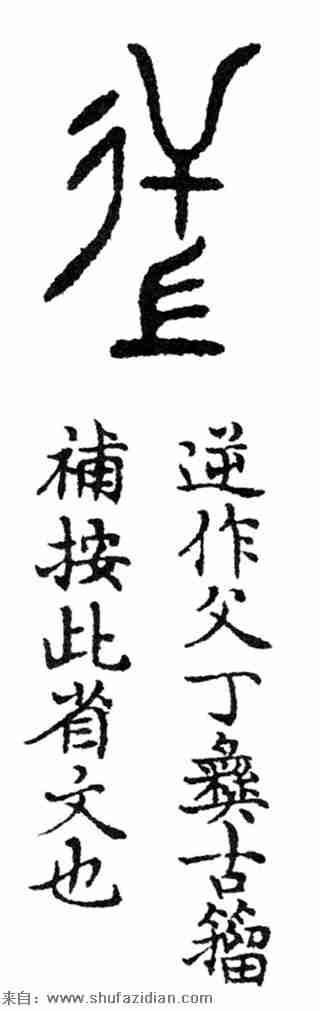 逆
逆作父丁彝古籀
補按此省文也
来自：www.shufazidian.com